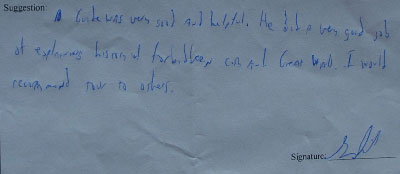 Suggestion: Guide was very good and helpful. He did a very good job
of explaining history of forbidden city and Great Wall. I would
recommend tour to others.
Signature: